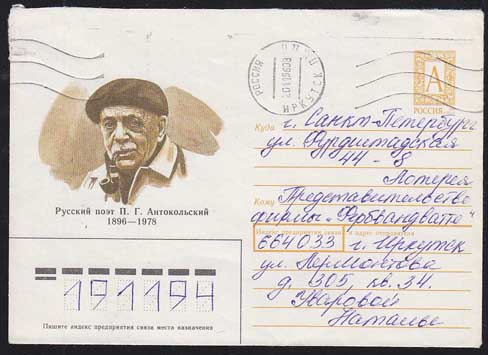 РОССИЯ
ИРКУТСК
А
РОССИЯ
Русский поэт П. Г. Антокольский
1896—1978
Куда г. Санкт-Петербург
ул. Фурштадская
44-8
Лотерея
Кому Представительство
фирмы
Индекс предприятия связи и адрес отправителя
664033 г. Иркутск
ул. Лермонтова
д. 305, кв. 34.
Уваровой
Наталье
191194
Пишите индекс предприятия связи места назначения